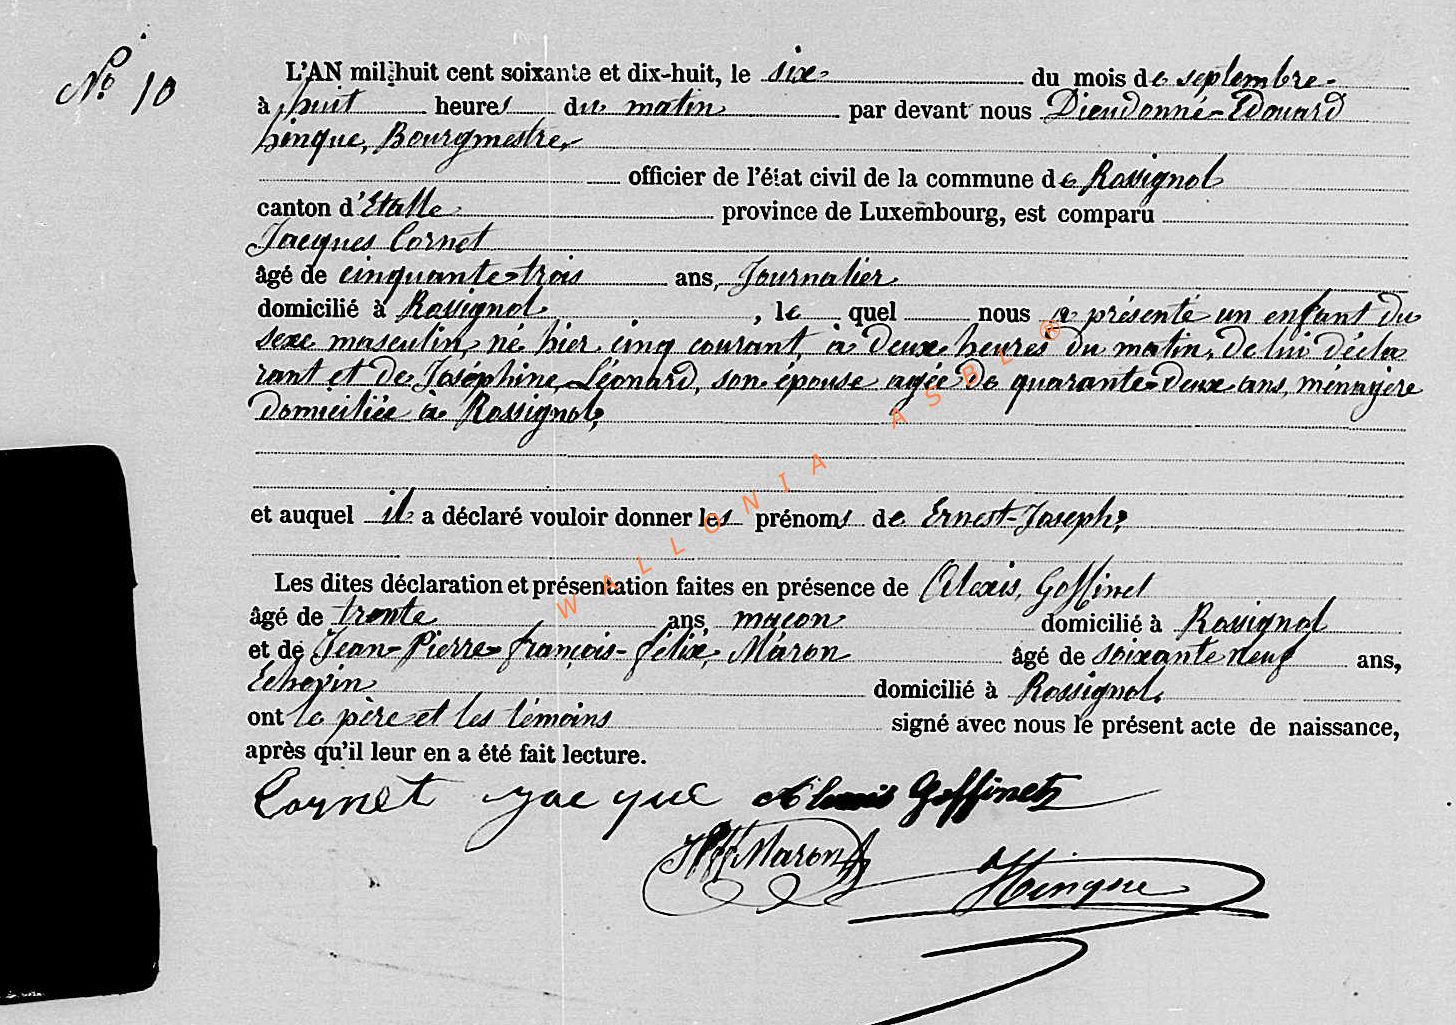 N° 10
L'AN mil huit cent soixante et dix-huit, le six du mois de septembre
à huit heures du matin par devant nous Dieudonné-Edouard
hinque, Bourgmestre
officier de l'état civil de la commune de Rossignol
canton d'Etalle province de Luxembourg, est comparu
Jacques Cornet
âgé de cinquante-trois ans, Journalier
domicilié à Rossignol, le quel nous a présenté un enfant du
sexe masculin, né hier cinq courant, à deux heures du matin, de lui décla
rant et de Joséphine Léonard, son épouse agée de quarante-deux ans, ménagère
domiciliée à Rossignol,
et auquel il a déclaré vouloir donner les prénoms de Ernest-Joseph,
Les dites déclaration et présentation faites en présence de Alexis Goffinet
âgé de trente ans, maçon domicilié à Rossignol
et de Jean-Pierre-françois-félix Maron âgé de soixante neuf ans,
Echevin domicilié à Rossignol.
ont le père et les témoins signé avec nous le présent acte de naissance,
après qu'il leur en a été fait lecture.
Cornet jacque Alexis Goffinet
JPffMaron
Hinque
WALLONIA ASBL ®